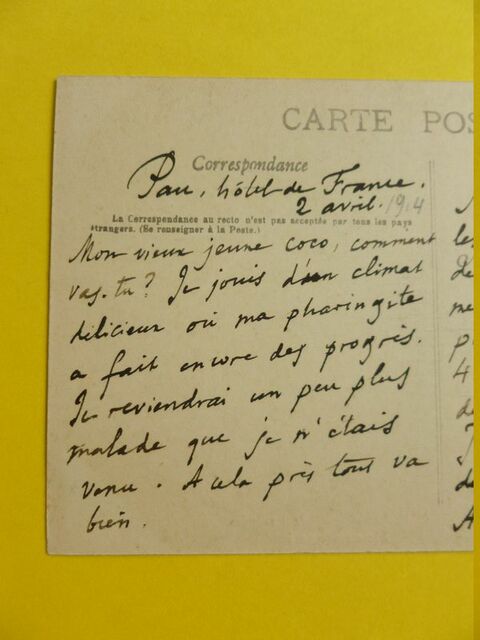 CARTE POS
Correspondance
Pau, hôtel de France.
2 avril. 1914
La Correspondance au recto n'est pas acceptée par tous les pays
étrangers. (Se renseigner à la Poste.)
Mon vieux jeune coco, comment
vas-tu? Je jouis d'un climat
délicieux où ma pharingite
a fait encore des progrès.
Je reviendrai un peu plus
malade que je n'étais
venu. A cela près tout va
bien.
4